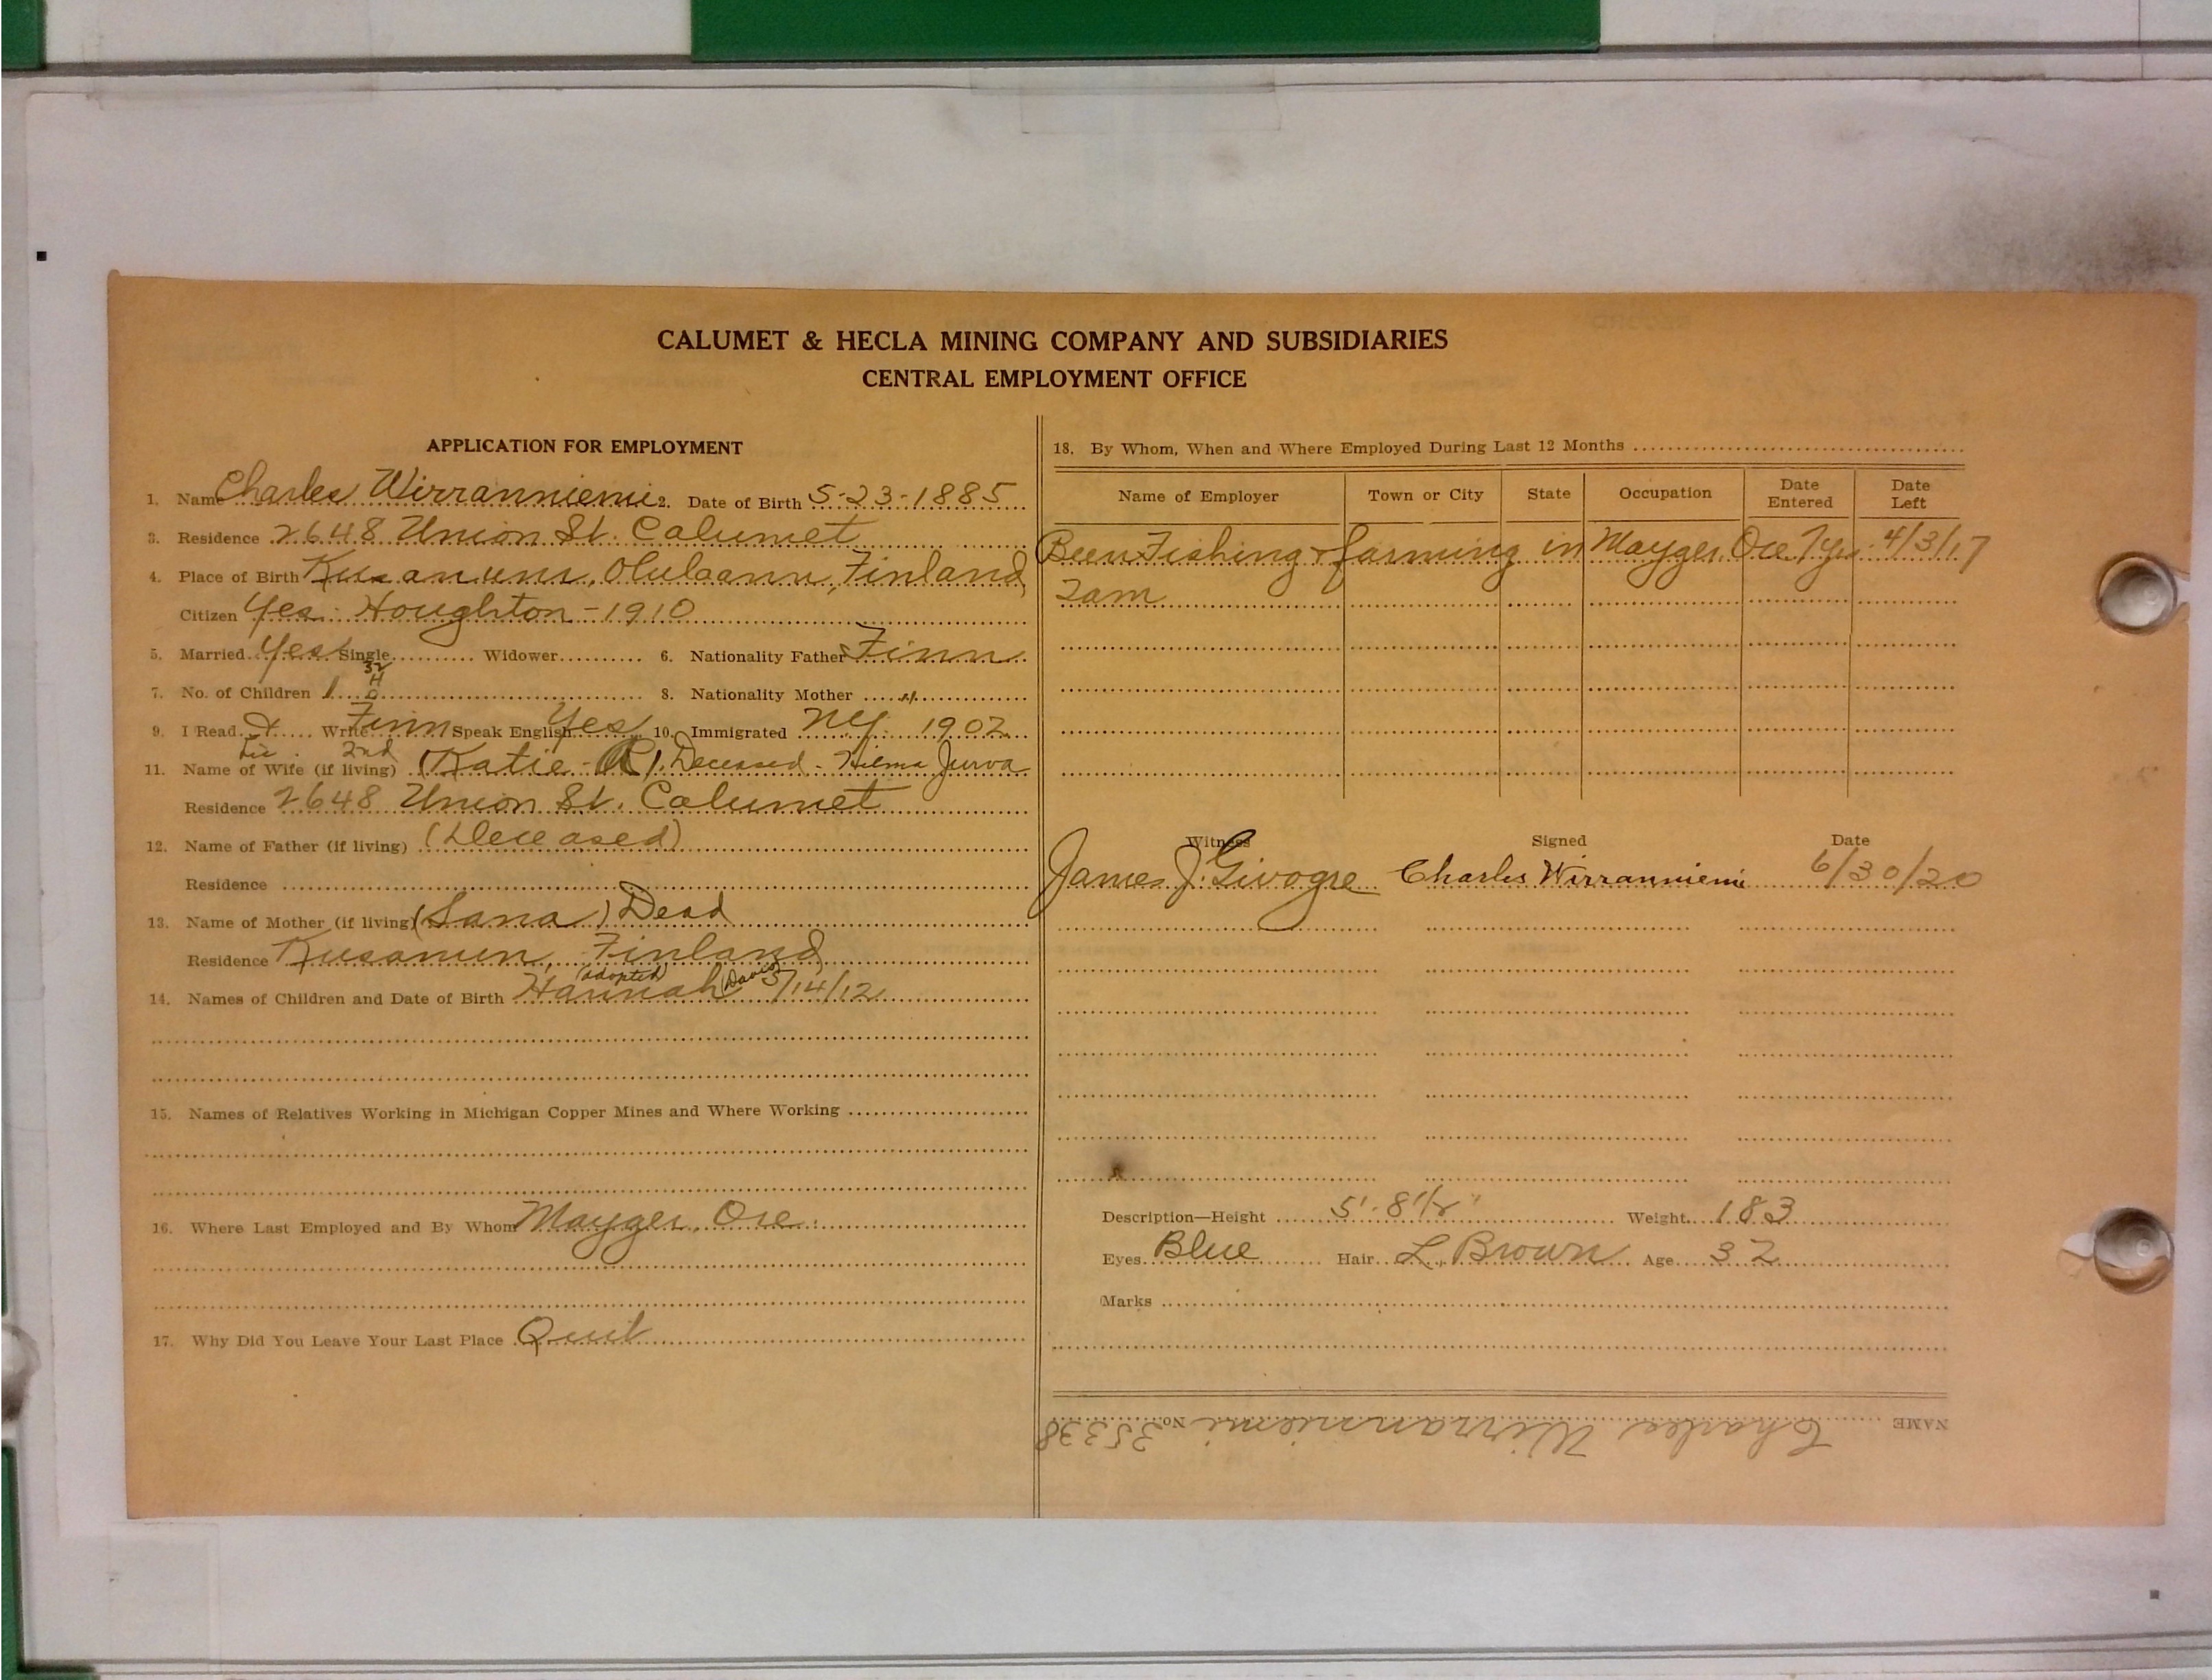 CALUMET & HECLA MINING COMPANY AND SUBSIDIARIES
CENTRAL EMPLOYMENT OFFICE
APPLICATION FOR EMPLOYMENT
1. Name Charles Wirranniemi 2. Date of Birth 5-23-1885
3. Residence 2648 Union St. Calumet
4. Place of Birth Kusamun, Finland
Citizen Yes. Houghton-1910
5. Married Yes Single Widower 6. Nationality Father Finn
7. No. of Children 1 8. Nationality Mother "
9. I Read & Write Finn Speak English Yes 10. Immigrated N.Y. 1902
2nd
11. Name of Wife (if living) (Katie) Deceased - Hilma Jurva
Residence 2648 Union St. Calumet
12. Name of Father (if living) (Deceased)
Residence
13. Name of Mother (if living) (Sana) Dead
Residence Kusamun, Finland
(adopted)
14. Names of Children and Date of Birth Hannah (Davis) /14/12
15. Names of Relatives Working in Michigan Copper Mines and Where Working
16. Where Last Employed and By Whom Mayger, Ore.
17. Why Did You Leave Your Last Place Quit
18. By Whom, When and Where Employed During Last 12 Months
Name of Employer Town or City State Occupation Date Entered Date Left
Been Fishing & farming in Mayger, Ore 4/3/17
Tam
Witness Signed Date
James J. Givogre Charles Wirranniemi 6/30/20
Description—Height 5'-8 1/2" Weight 183
Eyes Blue Hair L. Brown Age 32
Marks
NAME Charles Wirranniemi No. 35338